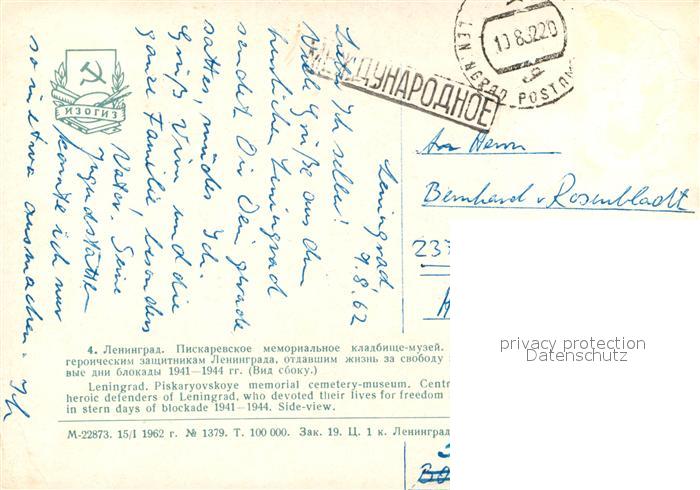 Leningrad,
9.8.62
Lieber Ich selber!
Viele Grüße aus dem
herrlichen Leningrad
sendet Dir Dein gerade
sattes, müdes Ich.
Grüß Vivu und die
ganze Familie besonders
Vater! Seine
Jugendstätten
konnte ich nur
so in etwa ausmachen. Ich
МЕЖДУНАРОДНОЕ
LENINGRAD POSTAM
10.8.6220
ИЗОГИЗ
An Herrn
Bernhard v. Rosenbladt
237
4. Ленинград. Пискаревское мемориальное кладбище-музей.
героическим защитникам Ленинграда, отдавшим жизнь за свободу
вые дни блокады 1941—1944 гг. (Вид сбоку.)
Leningrad. Piskaryovskoye memorial cemetery-museum. Centr
heroic defenders of Leningrad, who devoted their lives for freedom
in stern days of blockade 1941—1944. Side-view.
М-22873. 15/I 1962 г. № 1379. Т. 100 000. Зак. 19. Ц. 1 к. Ленинград
privacy protection
Datenschutz